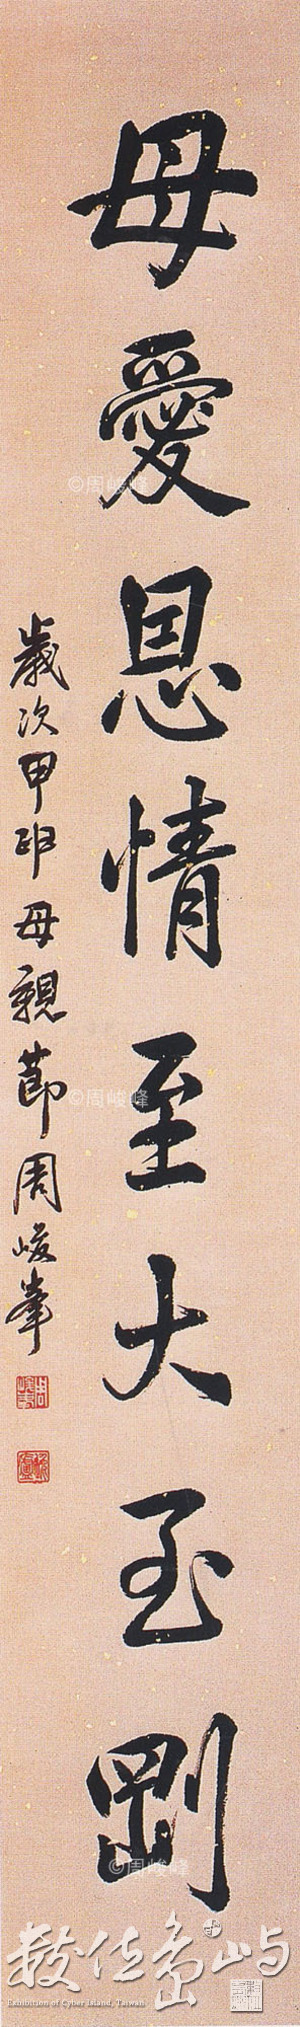 母愛恩情至大至剛
歲次甲申母親節周峻峰
©周峻峰
©周峻峰
©周峻峰
數位島嶼
Exhibition of Cyber Island, Taiwan